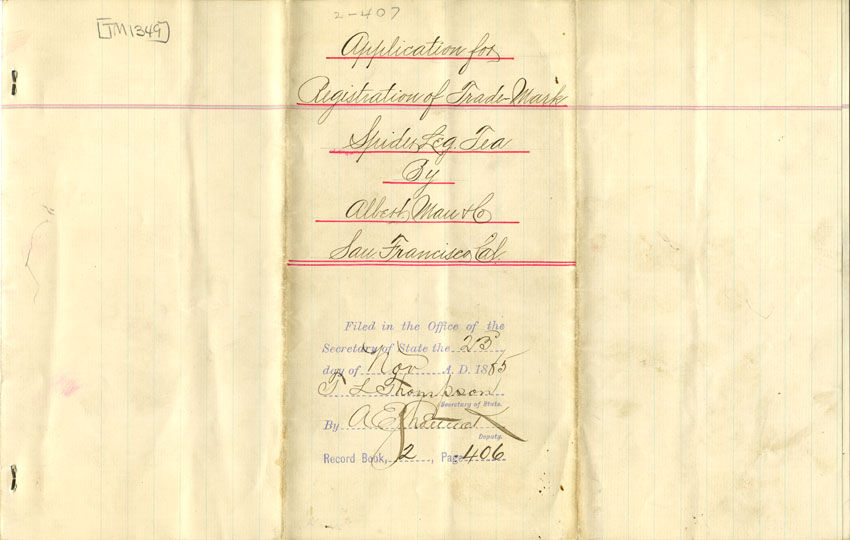 [TM1349]
2-407
Application for
Registration of Trade-Mark
Spider Leg. Tea
By
Albert Mau & Co
San Francisco, Cal.
Filed in the Office of the
Secretary of State the 23
day of Nov A. D. 1885
T L Thompson
Secretary of State.
By A E
Deputy.
Record Book, 2, Page 406